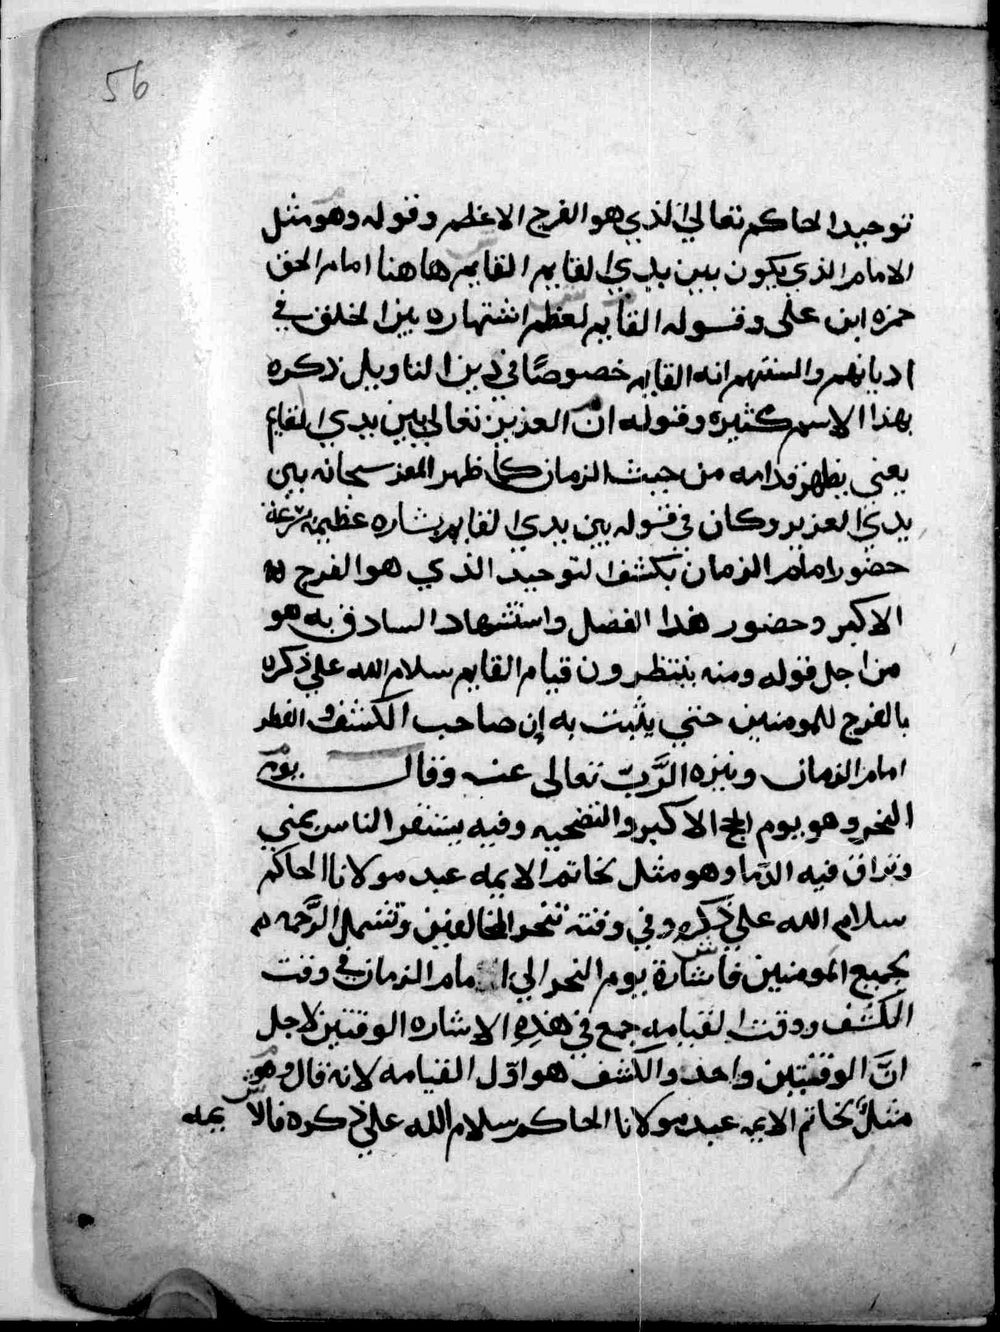 56
توحيد الحاكم تعالى الذي هو الفرج الاعظم وقوله وهو مثل
الامام الذي يكون بين يدي القايم القايم هاهنا امام الحق
حمزه ابن على وقوله القايم لعظم اشتهاره بين الخلق في
اديانهم والسنتهم انه القايم خصوصًا في دين التاويل ذكره
بهذا الاسم كثيره وقوله ان العزيز تعالى بين يدي القايم
يعني يظهر قدامه من حيث الزمان كما ظهر المعز سبحانه بين
يدي العزيز وكان في قوله بين يدي القايم بشاره عظيمه
حضور امام الزمان بكشف التوحيد الذي هو الفرج
الاكبر وحضور هذا الفصل واستشهاد السادق به هو
من اجل قوله ومنه ينتظرون قيام القايم سلام الله علي ذكره
بالفرج للمومنين حتي يثبت به إن صاحب الكشف
امام الزمان وينزه الرَّبّ تعالى عنه وقال يوم
النحر وهو يوم الحج الاكبر والتضحيه وفيه يستنفر الناس بمني
وتراق فيه الدما وهو مثل بخاتم الايمه عبد مولانا الحاكم
سلام الله علي ذكره وفي وقته تنحر المخالفين وتشمل الرَّحمه
بجميع المومنين فاشارة بيوم النحر الي امام الزمان في وقت
الكشف ووقت القيامه جمع في هذه الاشاره الوقتين لاجل
انَّ الوقتين واحد والكشف هو اوّل القيامه لانه قال وهو
مثل بخاتم الايمه عبد مولانا الحاكم سلام الله علي ذكره فالا يمه